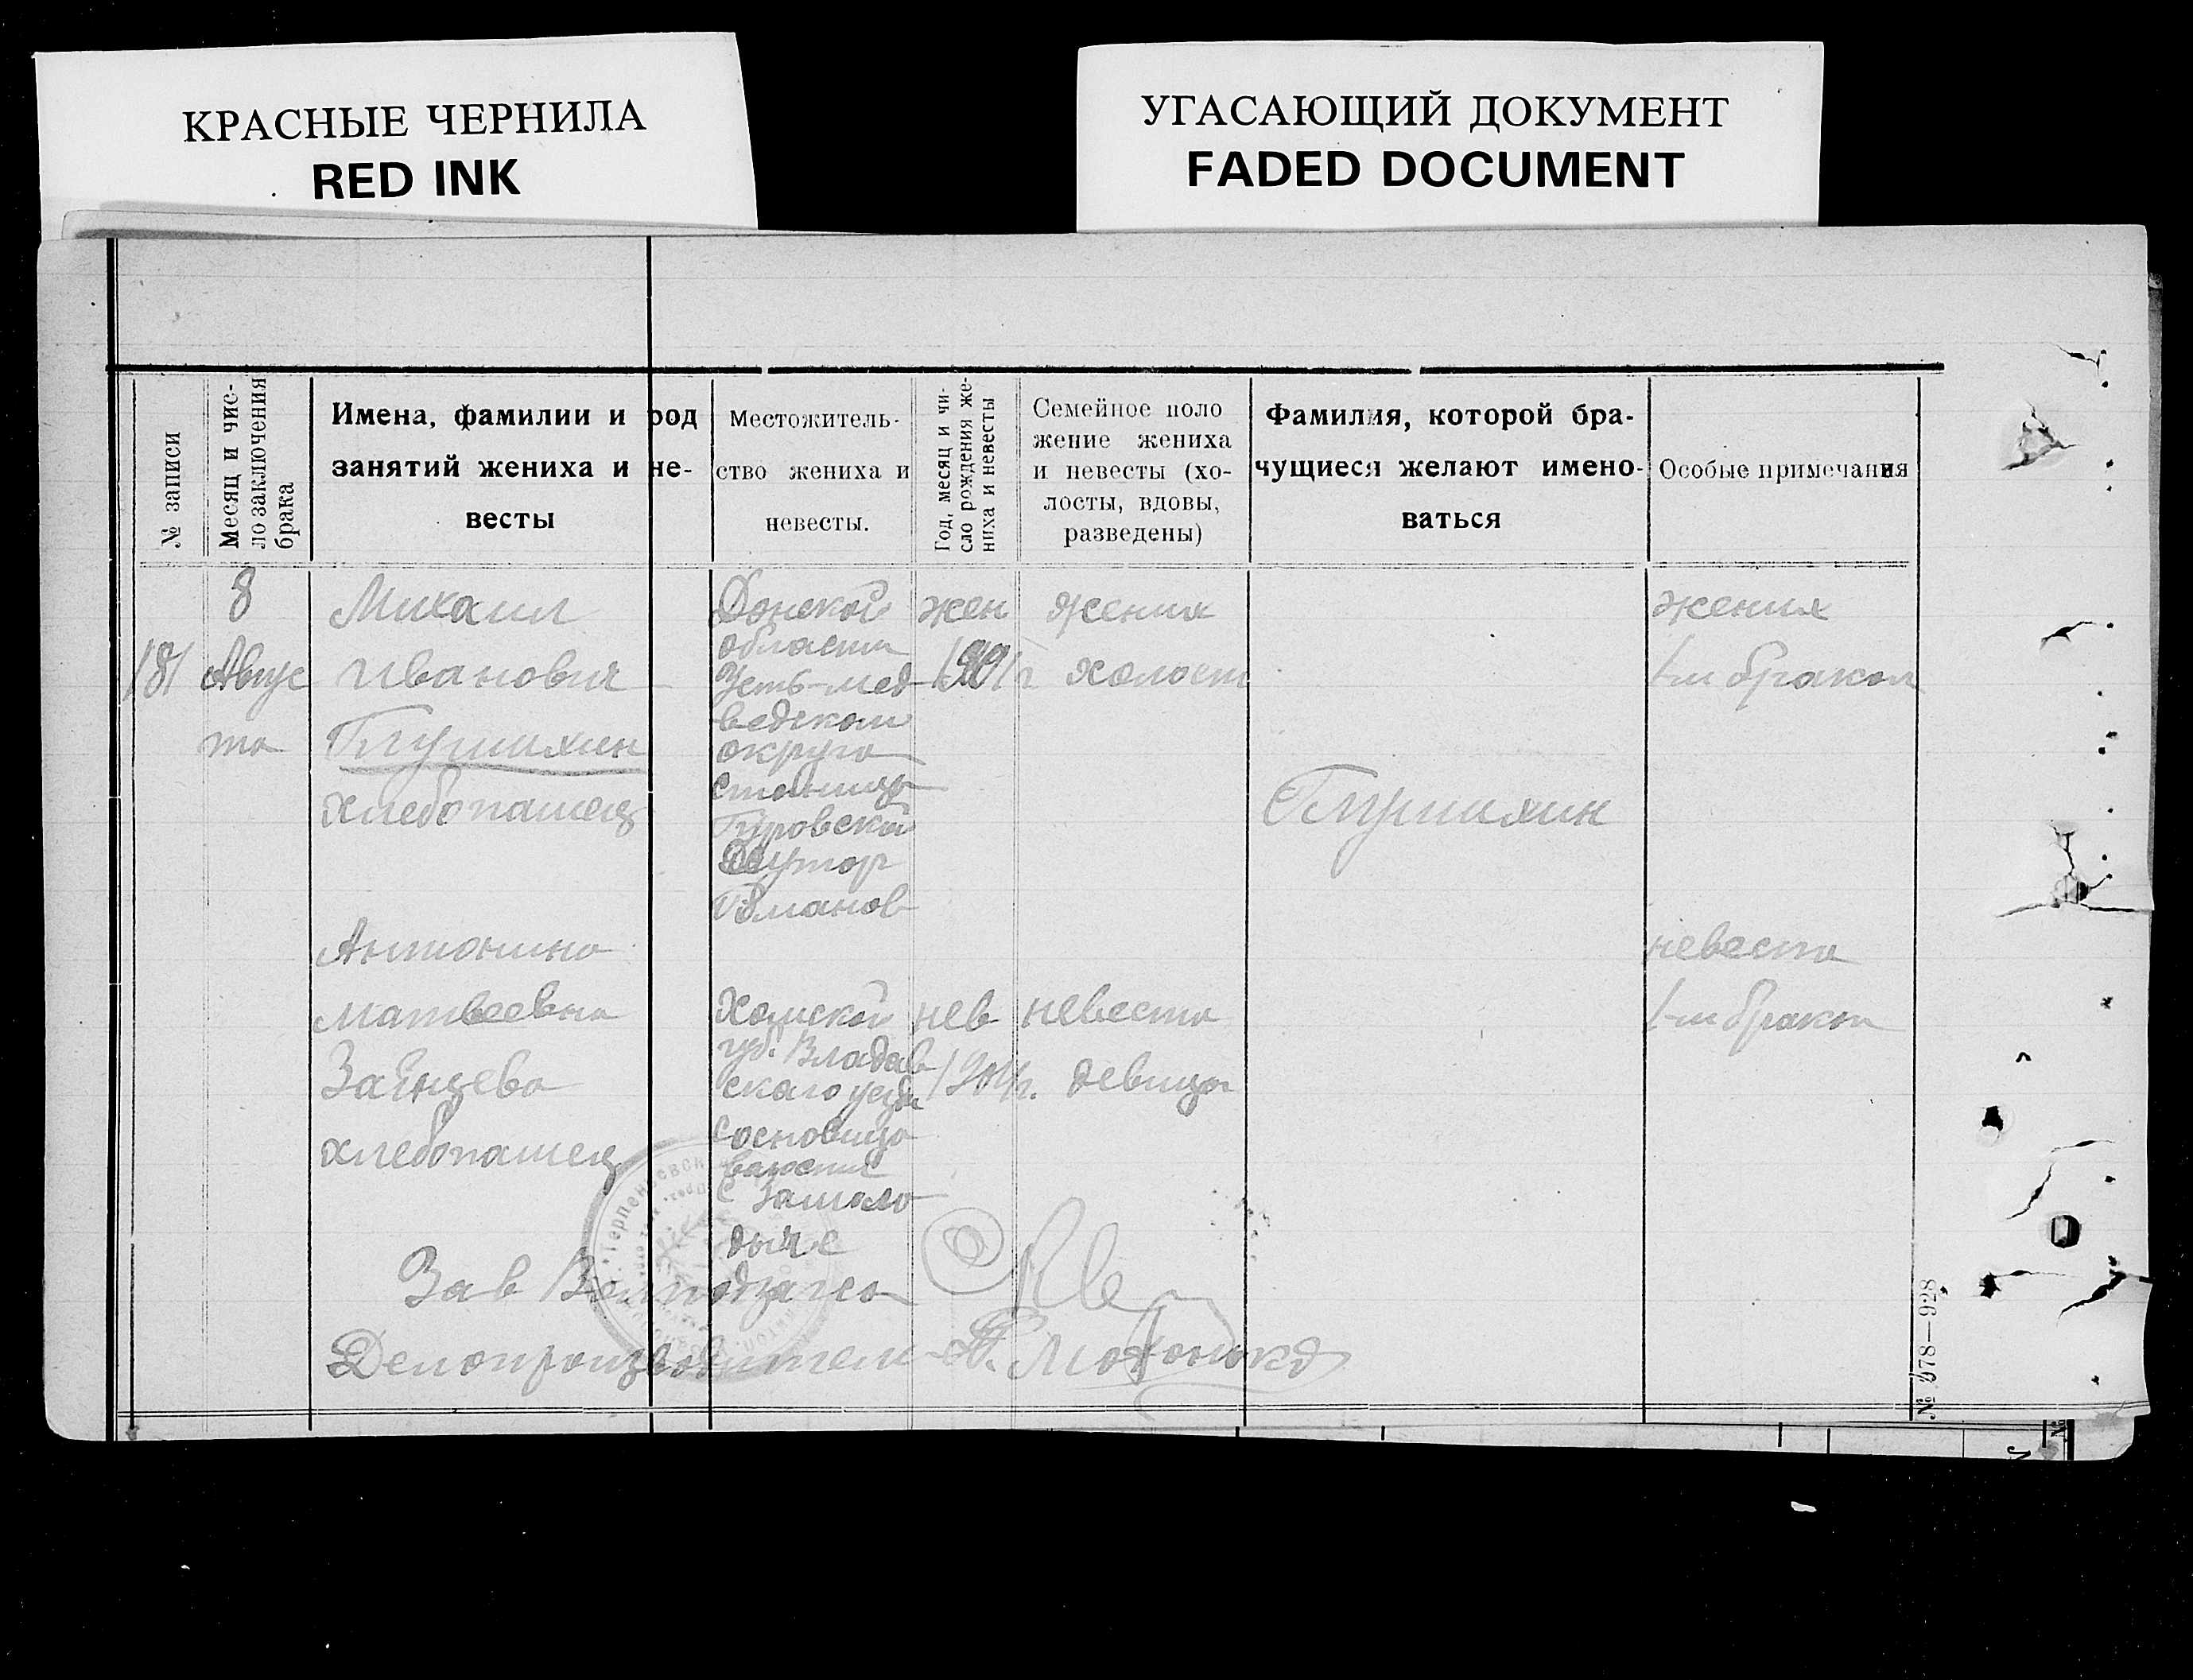 КРАСНЫЕ ЧЕРНИЛА
RED INK
УГАСАЮЩИЙ ДОКУМЕНТ
FADED DOCUMENT
№ записи
Месяц и чис-
ло заключения
брака
Имена, фамилии и род
занятий жениха и не-
весты
Местожитель-
ство жениха и
невесты.
Год, месяц и чи-
сло рождения же-
ниха и невесты
Семейное поло
жение жениха
и невесты (хо-
лосты, вдовы,
разведены)
Фамилия, которой бра-
чущиеся желают имено-
ваться
Особые примечания
181
8
Авгус
та
Михаил
Иванович
Глушихин
хлебопашец
Донской
области
Усть-мед
ведском
округа
станицы
Гуровской
хутор
Романов
жен
1901г
жених
холост
Глушихин
жених
1-м браком
Антонина
матвеевна
Заянцева
хлебопашец
Холмской
губ. Владав
скаго уезда
Сосновица
волости
с
дыче
нев
1904г.
невеста
девица
невеста
1-м браком
Зав
Делопроизводитель
№ 378—928